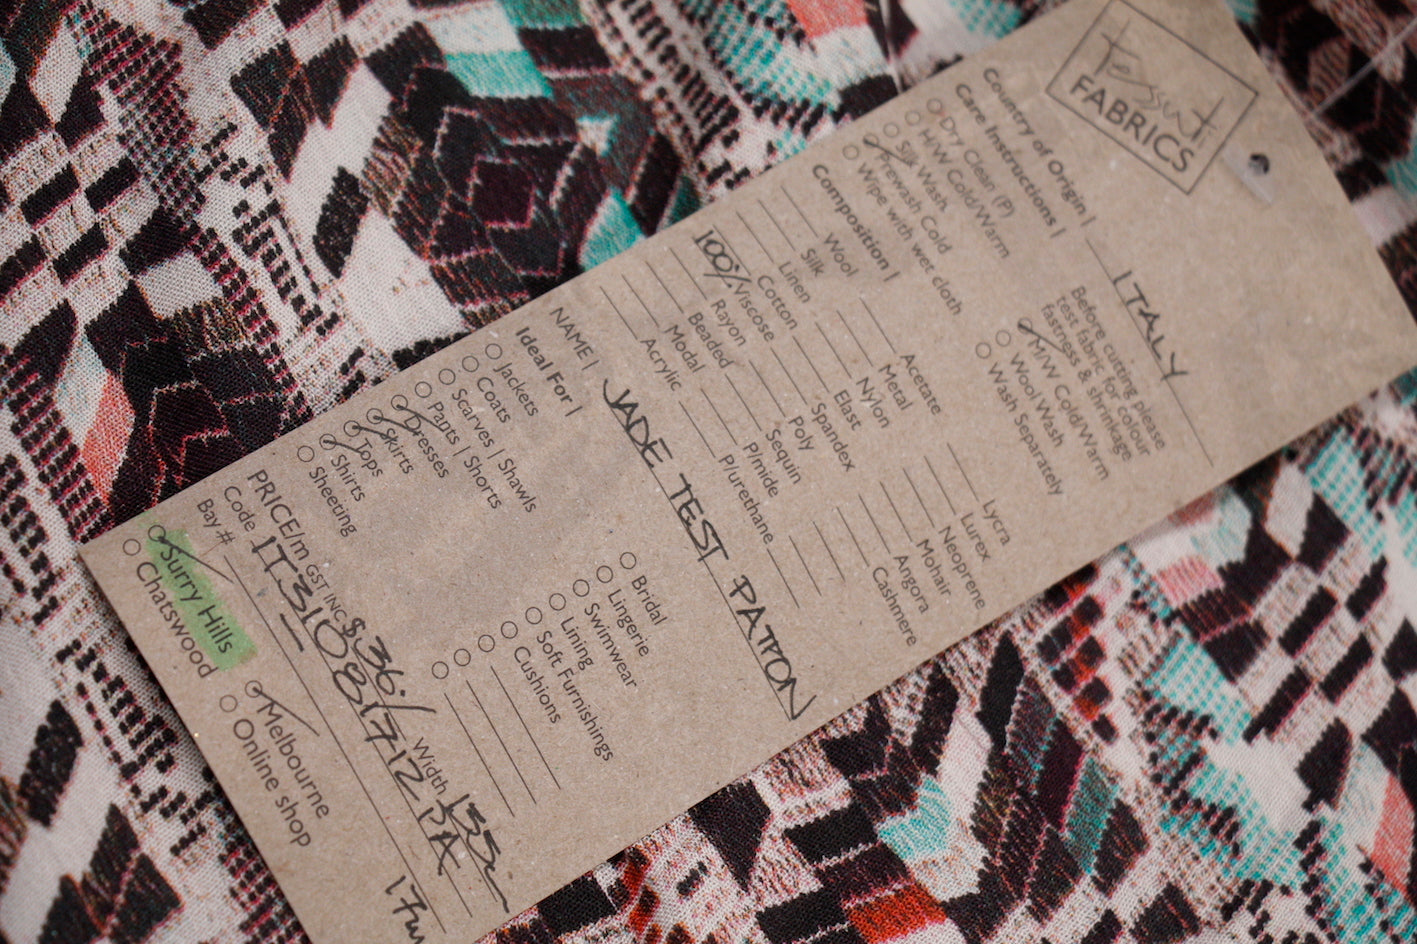 Tessuti
FABRICS
Country of Origin | ITALY
Care Instructions |
Dry Clean (P)
H/W Cold/Warm
Silk Wash
Prewash Cold
Wipe with wet cloth
Before cutting please
test fabric for colour
fastness & shrinkage
M/W Cold/Warm
Wool Wash
Wash Separately
Composition |
Wool Acetate Lycra
Silk Metal Lurex
Linen Nylon Neoprene
Cotton Elast Mohair
100% Viscose Spandex Angora
Rayon Poly Cashmere
Beaded Sequin
Modal P/mide
Acrylic P/urethane
NAME | JADE TEST PATTON
Ideal For |
Jackets Bridal
Coats Lingerie
Scarves | Shawls Swimwear
Pants | Shorts Lining
Dresses Soft Furnishings
Skirts Cushions
Tops
Shirts
Sheeting
PRICE/m GST INC $36./ Width
Code
Bay #
Surry Hills Melbourne
Chatswood Online shop